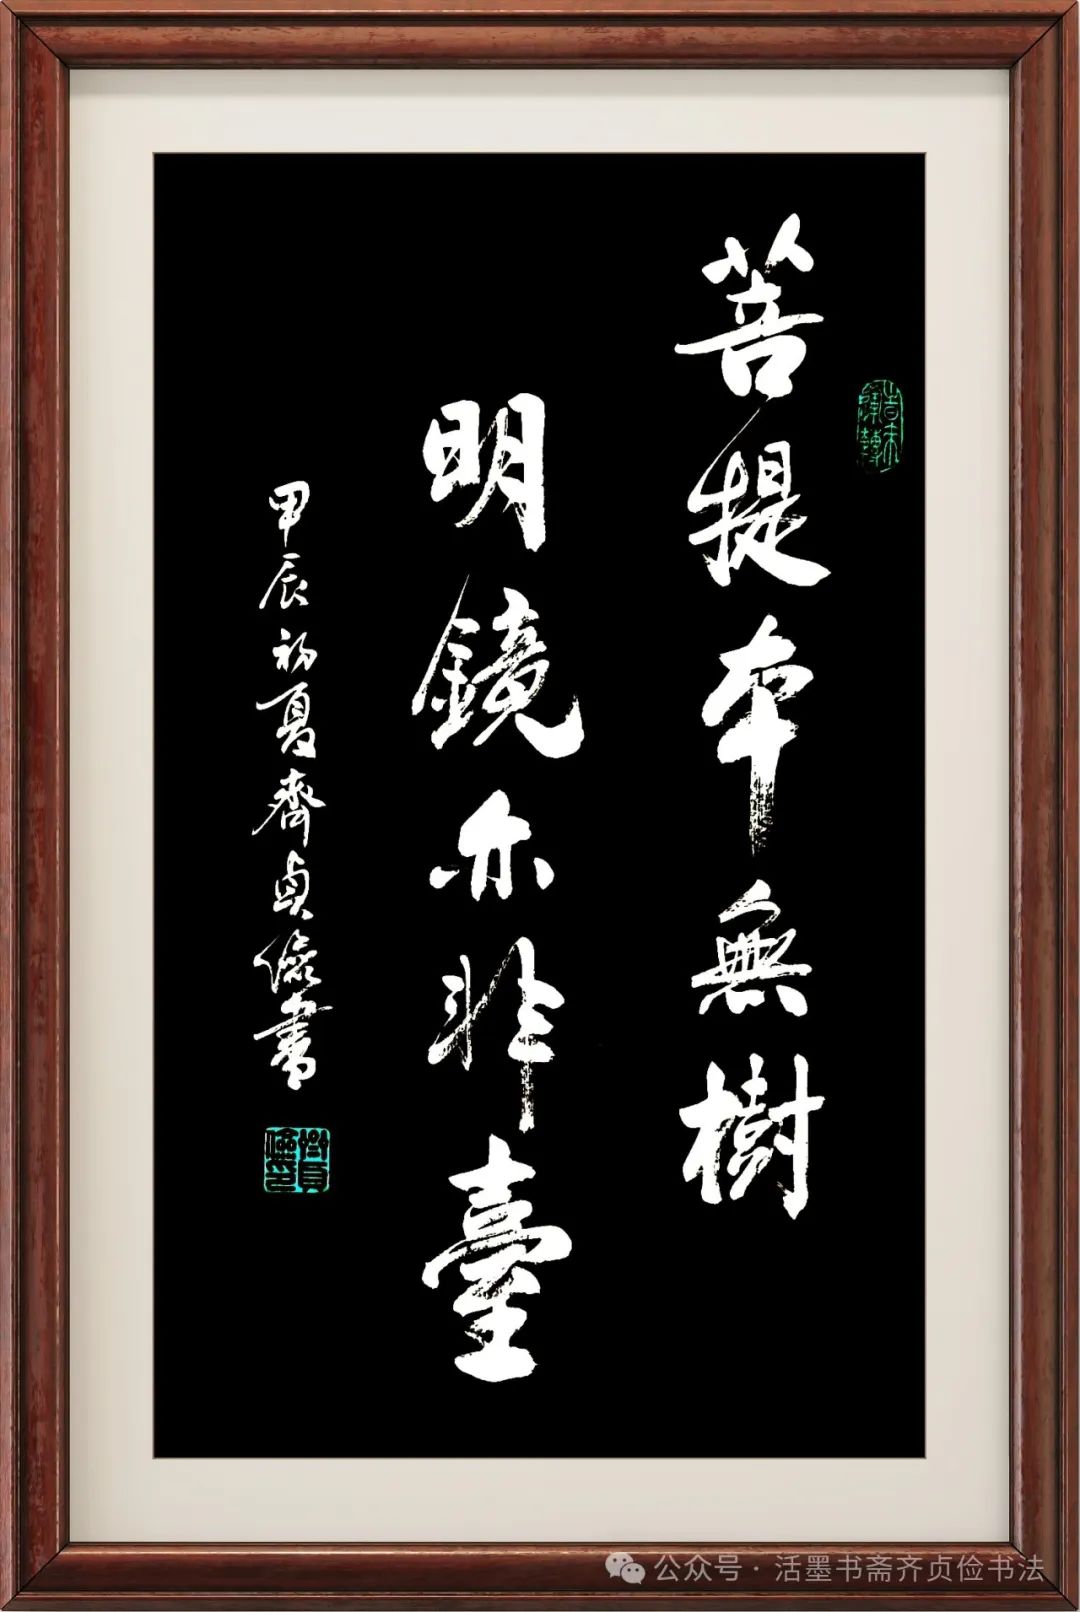 菩提本無樹
明鏡亦非臺
甲辰初夏齊貞儉書
公众号·活墨书斋齐贞俭书法